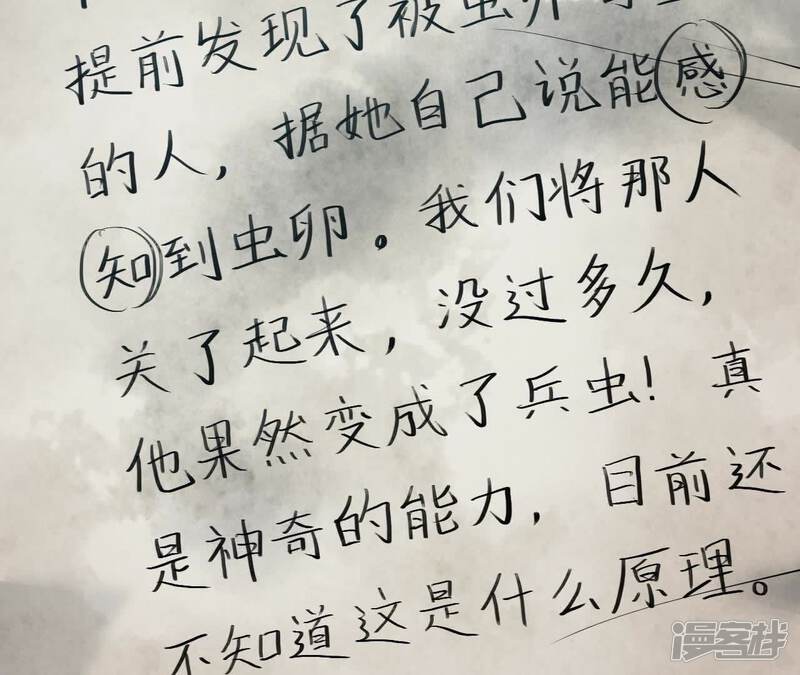 提前发现了被虫卵
的人，据她自己说能感
知到虫卵。我们将那人
关了起来，没过多久，
他果然变成了兵虫！真
是神奇的能力，目前还
不知道这是什么原理。
漫客栈